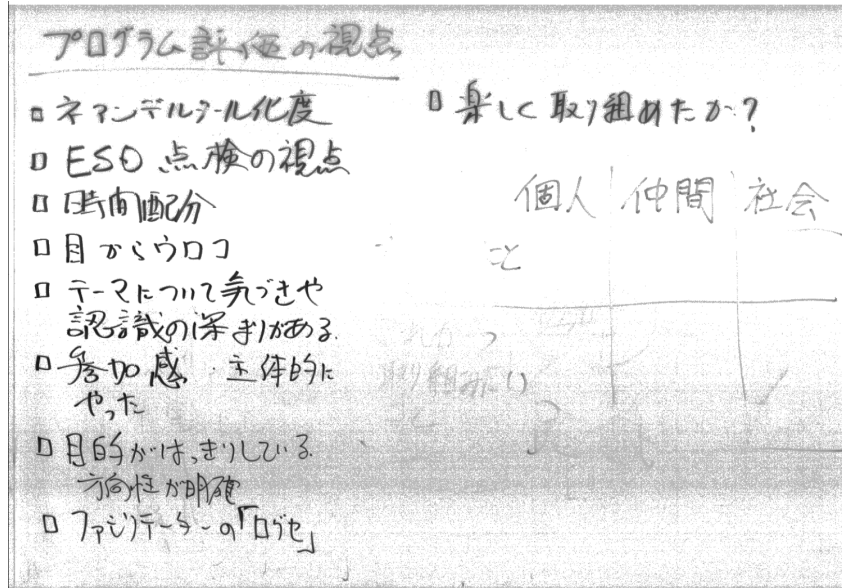 プログラム評価の視点
□ ネアンデルタール化度
□ ESD 点検の視点
□ 時間配分
□ 目からウロコ
□ テーマについて気づきや
認識の深まりがある.
□ 参加感・主体的に
やった
□ 目的がはっきりしている.
方向性が明確
□ ファシリテーターの「口グセ」
□ 楽しく取り組めたか?
個人 仲間 社会
こと